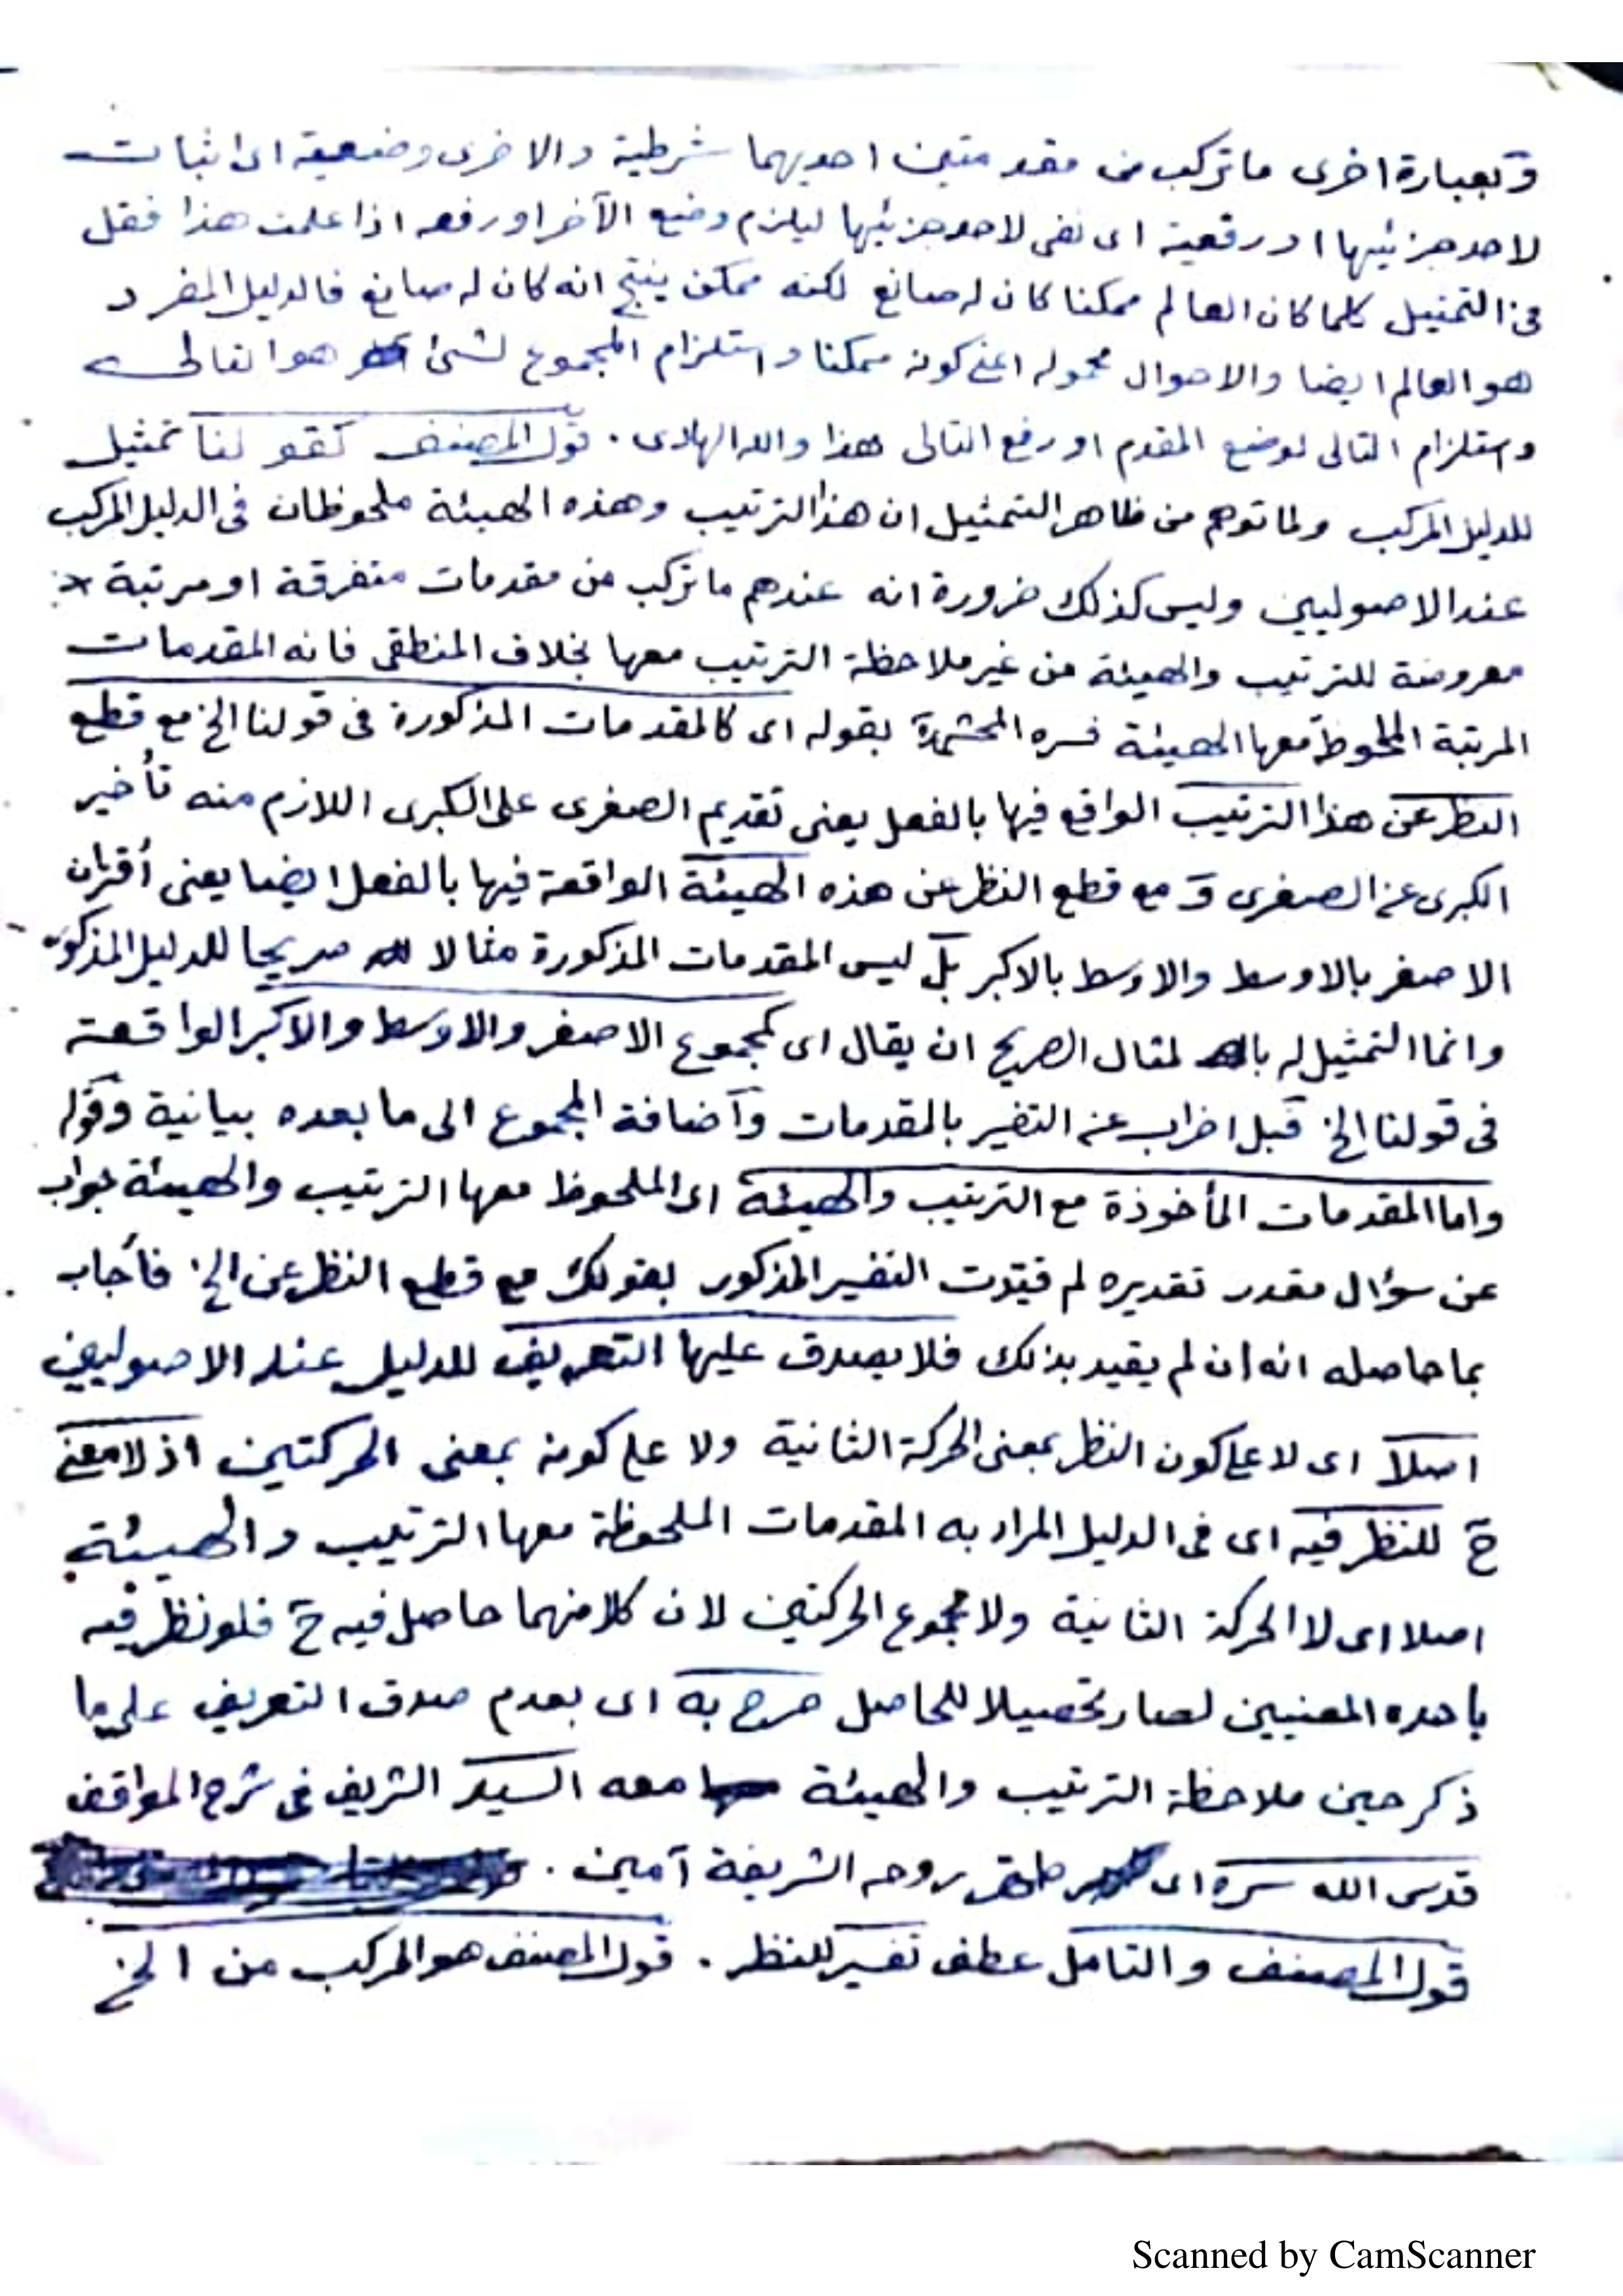 وبعبارة اخرى ما تركب من مقدمتين احديهما شرطية والاخرى وضعية اى اثبات
لاحد جزئيها او رفعية اى نفى لاحد جزئيها ليلزم وضع الآخر او رفعه اذا علمت هذا فقل
فى التمثيل كلما كان العالم ممكنا كان له صانع لكنه ممكن ينتج انه كان له صانع فالدليل المفرد
هو العالم ايضا والاحوال محموله اعنى كونه ممكنا واستلزام المجموع لشئ هو التالى
واستلزام التالى لوضع المقدم او رفع التالى هذا والله الهادى . قول المصنف كقولنا تمثيل
للدليل المركب ولما توهم من ظاهر التمثيل ان هذا الترتيب وهذه الهيئة ملحوظان فى الدليل المركب
عند الاصوليين وليس كذلك ضرورة انه عندهم ما تركب من مقدمات متفرقة او مرتبة
معروضة للترتيب والهيئة من غير ملاحظة الترتيب معها بخلاف المنطقى فانه المقدمات
المرتبة الملحوظ معها الهيئة فسره المحشى بقوله اى كالمقدمات المذكورة فى قولنا الخ مع قطع
النظر عن هذا الترتيب الواقع فيها بالفعل يعنى تقديم الصغرى على الكبرى اللازم منه تأخير
الكبرى عن الصغرى و مع قطع النظر عن هذه الهيئة الواقعة فيها بالفعل ايضا يعنى أقتران
الاصغر بالاوسط والاوسط بالاكبر بل ليس المقدمات المذكورة مثالا صريحا للدليل المذكور
وانما التمثيل له بالمثال الصريح ان يقال اى كمجموع الاصغر والاوسط والاكبر الواقعة
فى قولنا الخ قبل اضراب عن التفسير بالمقدمات وآضافة المجموع الى ما بعده بيانية وقوله
واما المقدمات المأخوذة مع الترتيب والهيئة اى الملحوظ معها الترتيب والهيئة جواب
عن سؤال مقدر تقديره لم قيدت التفسير المذكور بقولك مع قطع النظر عن الخ فأجاب
بما حاصله انه ان لم يقيد بذلك فلا يصدق عليها التعريف للدليل عند الاصوليين
اصلا اى لا على كون النظر بمعنى الحركة الثانية ولا على كونه بمعنى الحركتين اذ لا معنى
ح للنظر فيه اى فى الدليل المراد به المقدمات الملحوظة معها الترتيب والهيئة
اصلا اى لا الحركة الثانية ولا مجموع الحركتين لان كلا منهما حاصل فيه ح فلو نظر فيه
باحده المعنيين لصار تحصيلا للحاصل صرح به اى بعدم صدق التعريف على ما
ذكر حين ملاحظة الترتيب والهيئة معه السيد الشريف فى شرح المواقف
قدس الله سره اى روحه الشريفة آمين .
قول المصنف والتامل عطف تفسير للنظر . قول المصنف هو المركب من الخ
Scanned by CamScanner